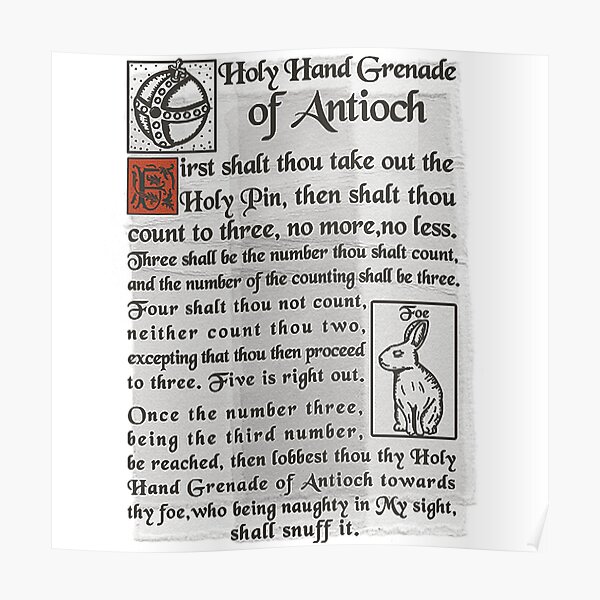 Holy Hand Grenade
of Antioch
First shalt thou take out the
Holy Pin, then shalt thou
count to three, no more,no less.
Three shall be the number thou shalt count,
and the number of the counting shall be three.
Four shalt thou not count,
neither count thou two,
excepting that thou then proceed
to three. Five is right out.
Foe
Once the number three,
being the third number,
be reached, then lobbest thou thy Holy
Hand Grenade of Antioch towards
thy foe,who being naughty in My sight,
shall snuff it.